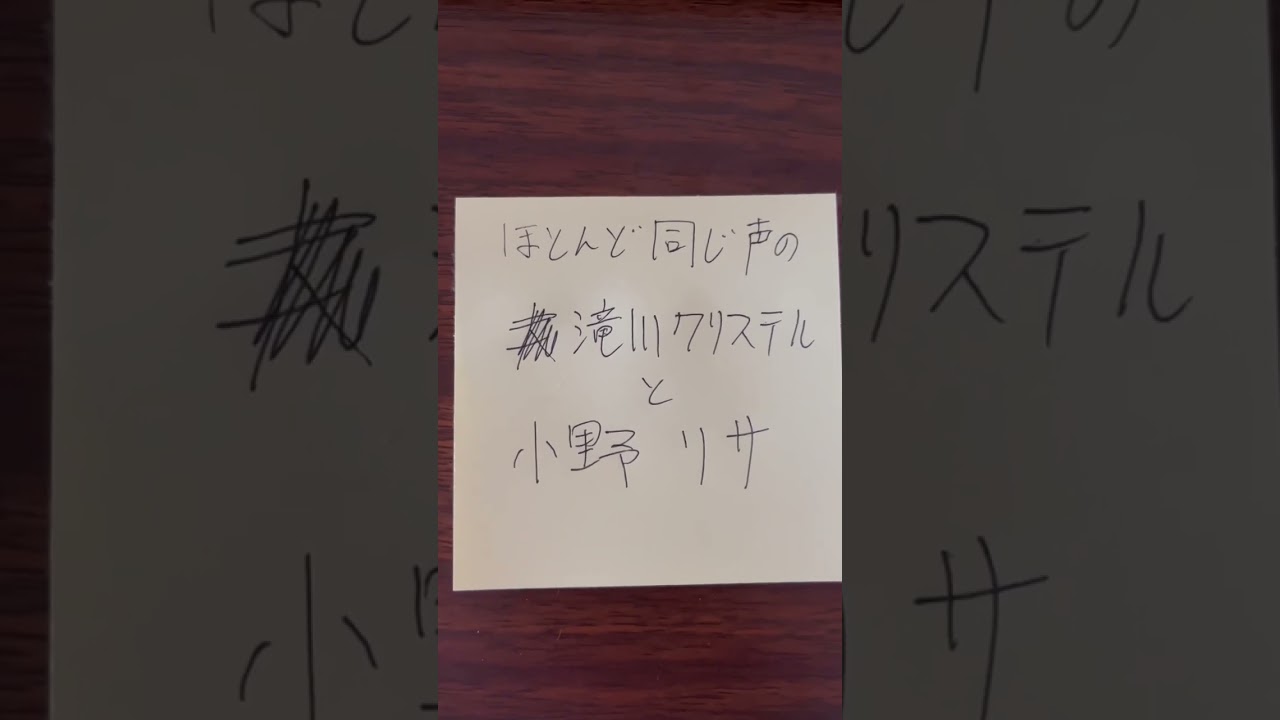 ほとんど同じ声の
滝川クリステル
と
小野リサ